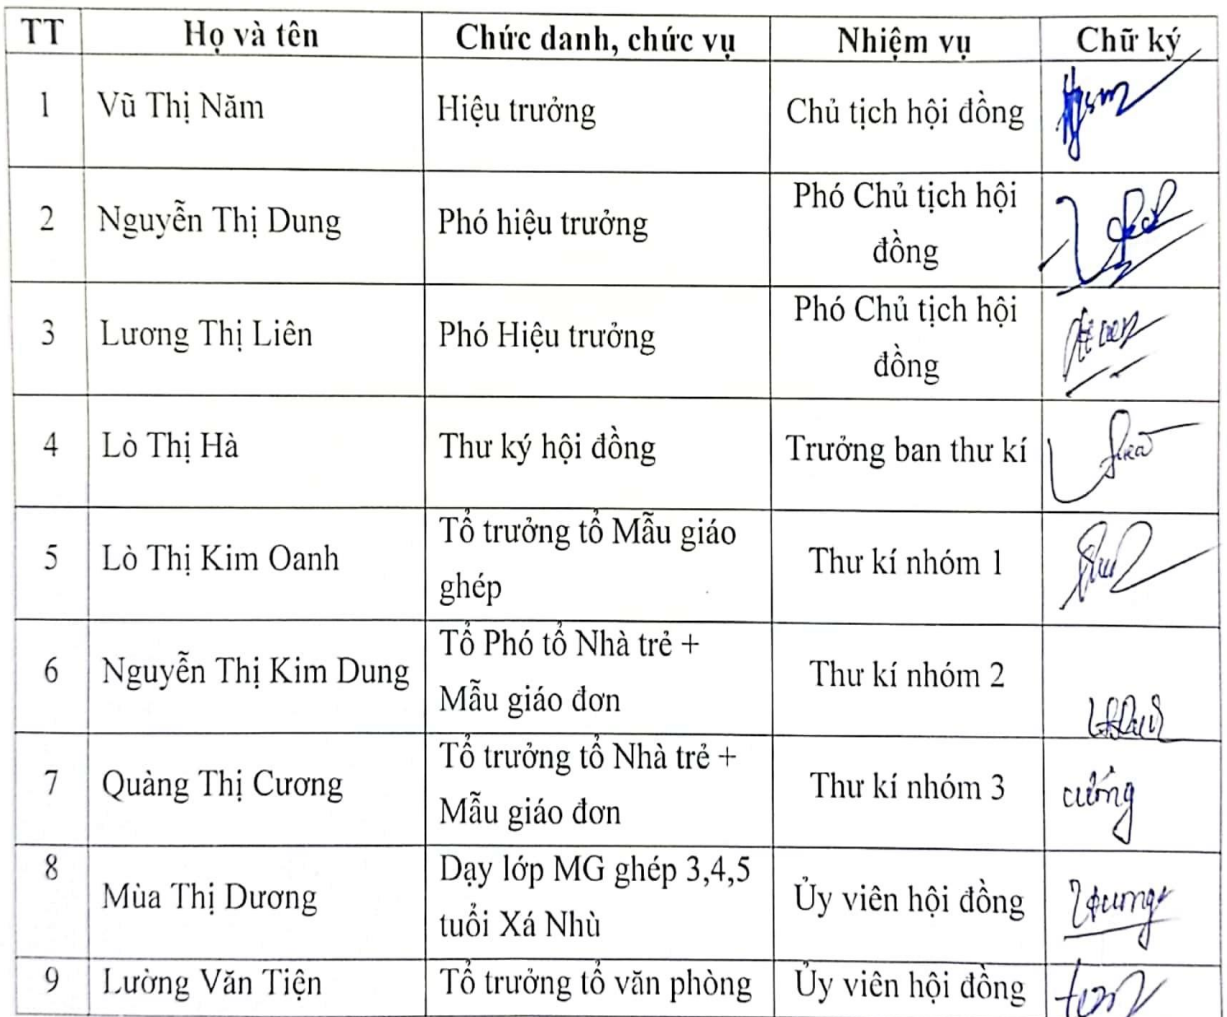 TT Họ và tên Chức danh, chức vụ Nhiệm vụ Chữ ký
1 Vũ Thị Năm Hiệu trưởng Chủ tịch hội đồng
2 Nguyễn Thị Dung Phó hiệu trưởng Phó Chủ tịch hội
đồng
3 Lương Thị Liên Phó Hiệu trưởng Phó Chủ tịch hội
đồng
4 Lò Thị Hà Thư ký hội đồng Trưởng ban thư kí
5 Lò Thị Kim Oanh Tổ trưởng tổ Mẫu giáo
ghép
Thư kí nhóm 1
6 Nguyễn Thị Kim Dung Tổ Phó tổ Nhà trẻ +
Mẫu giáo đơn
Thư kí nhóm 2
7 Quàng Thị Cương Tổ trưởng tổ Nhà trẻ +
Mẫu giáo đơn
Thư kí nhóm 3
8 Mùa Thị Dương Dạy lớp MG ghép 3,4,5
tuổi Xá Nhù
Ủy viên hội đồng
9 Lường Văn Tiện Tổ trưởng tổ văn phòng Ủy viên hội đồng